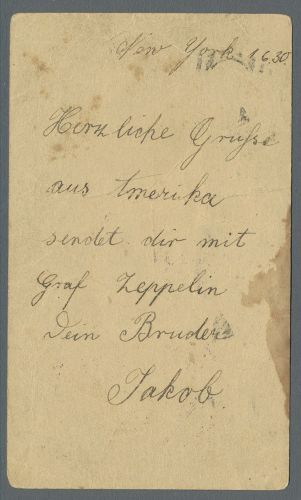 New York 1.6.30
Herzliche Grüsse
aus Amerika
sendet dir mit
Graf Zeppelin
Dein Bruder
Jakob.